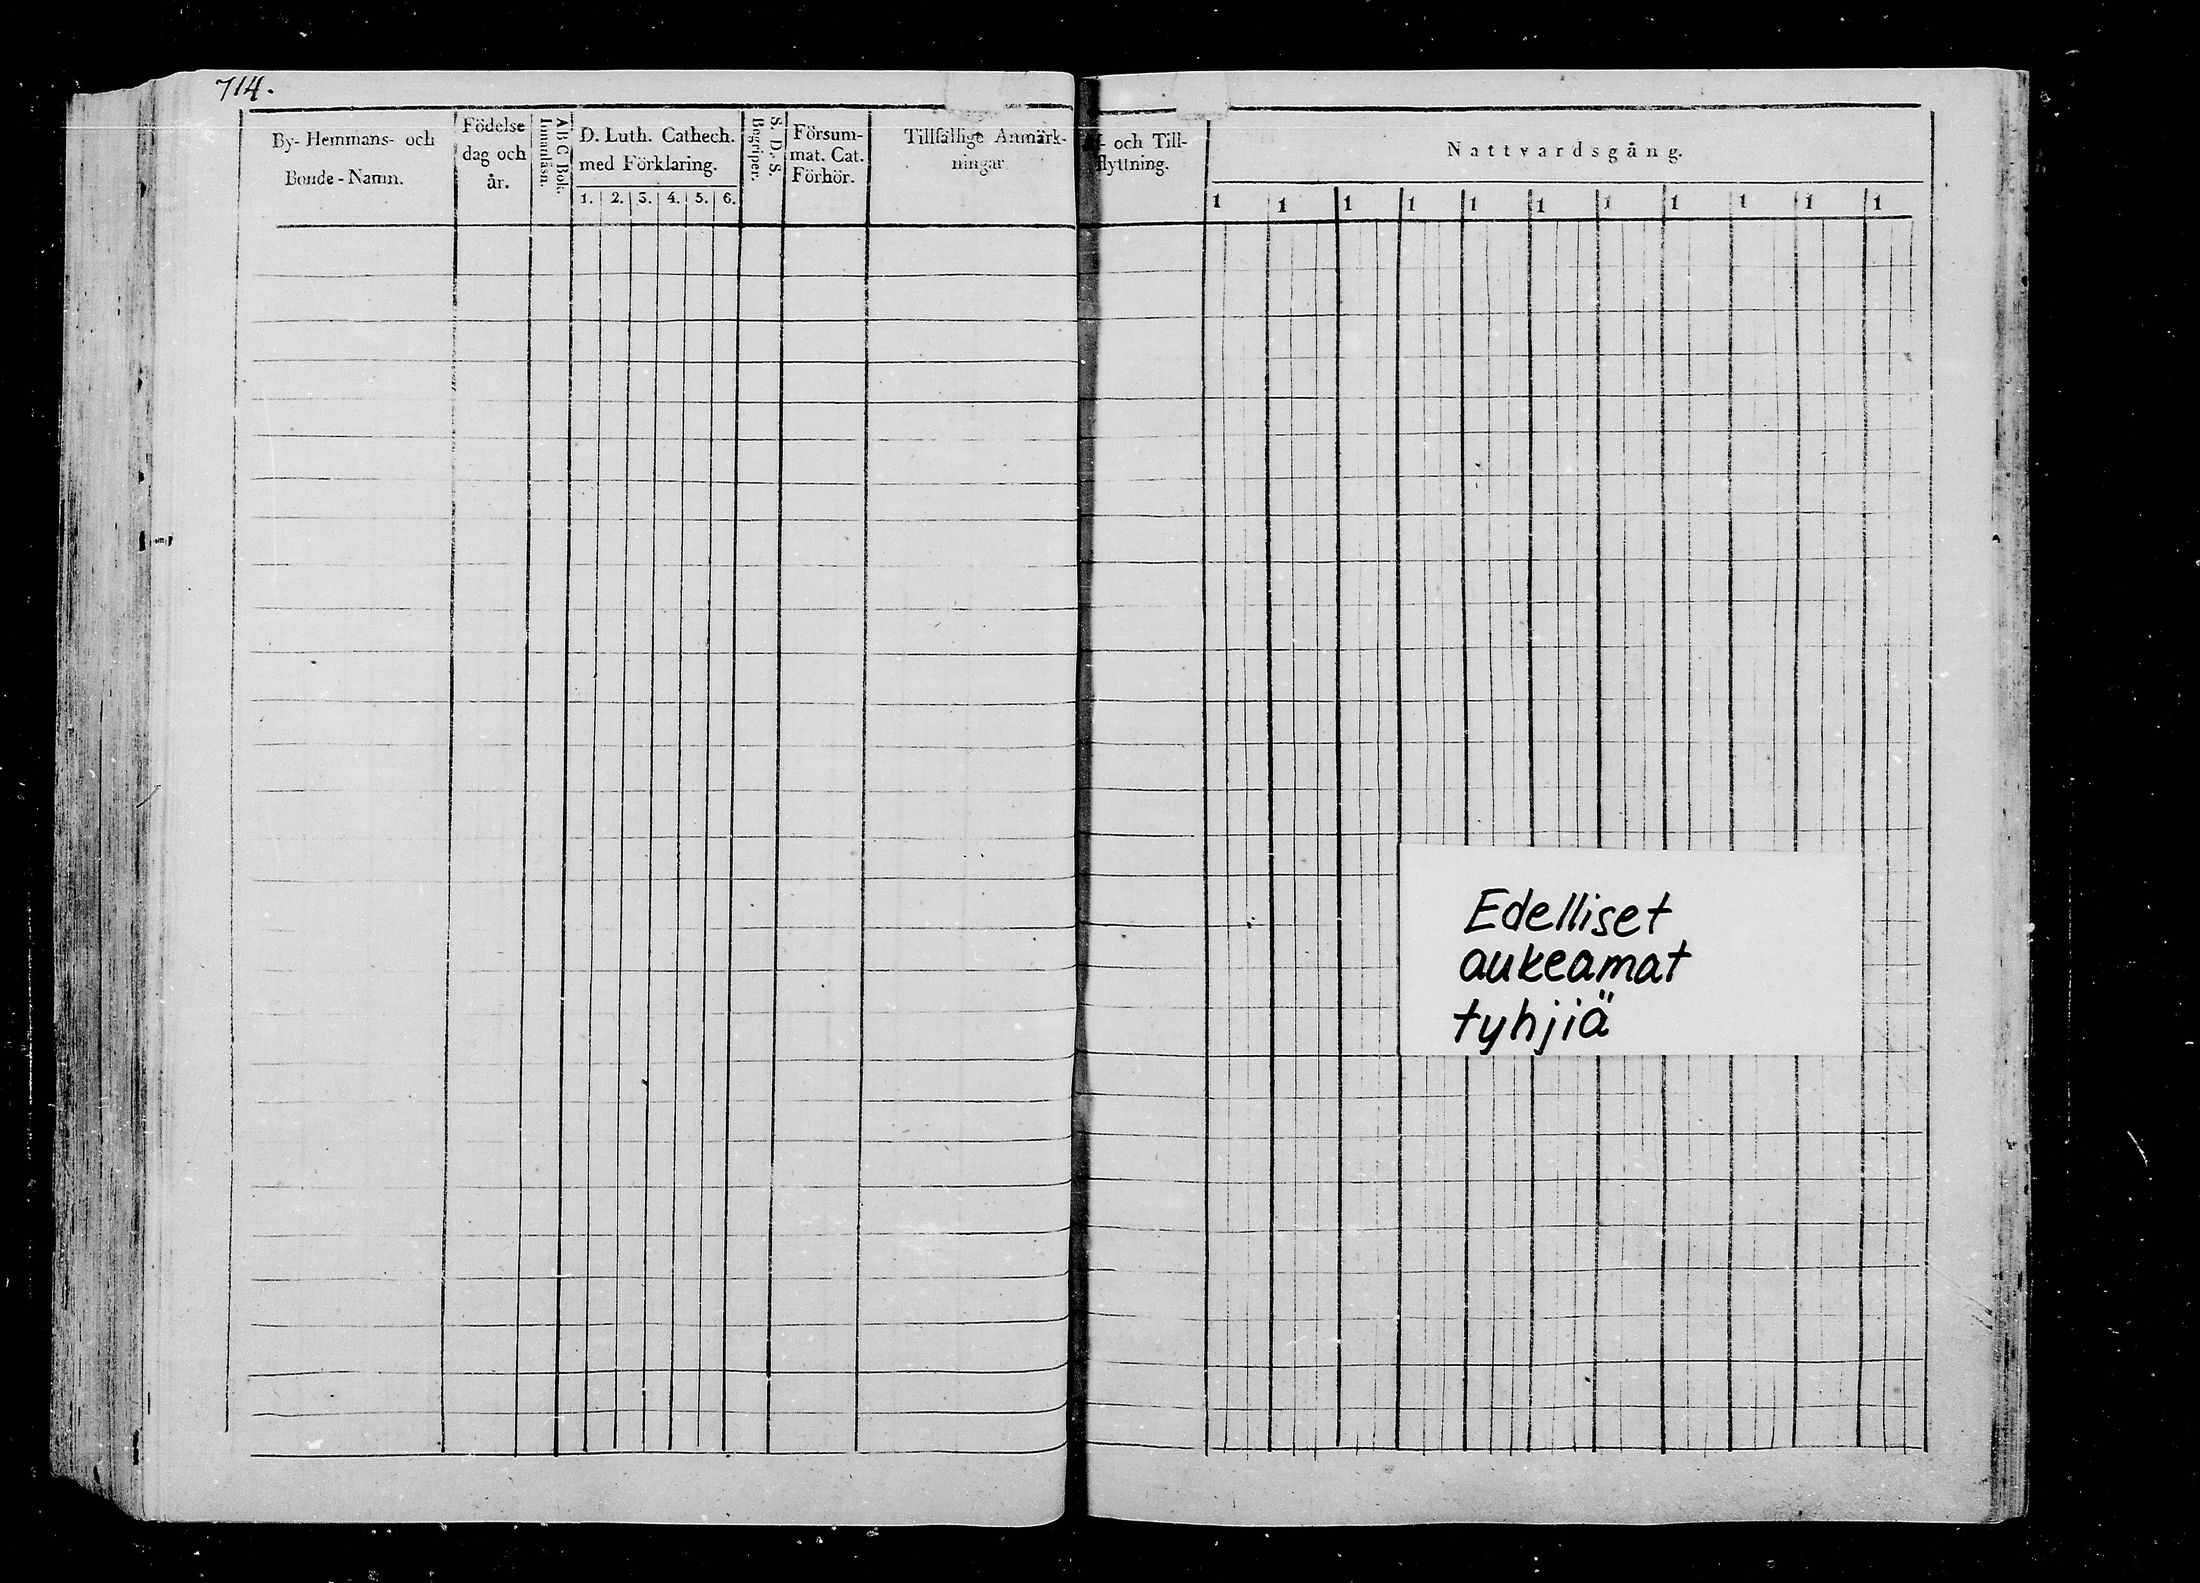 714.
By- Hemmans- och
Bonde-Namn.
Födelse
dag och
år.
A B C Bok.
Innanläsn.
D. Luth. Cathech.
med Förklaring.
1. 2. 3. 4. 5. 6.
S. D. S.
Begriper.
Försum-
mat. Cat.
Förhör.
Tillfällige Anmärk-
ningar
och Till-
flyttning.
Nattvardsgång.
1 1 1 1 1 1 1 1 1 1 1
Edelliset
aukeamat
tyhjiä